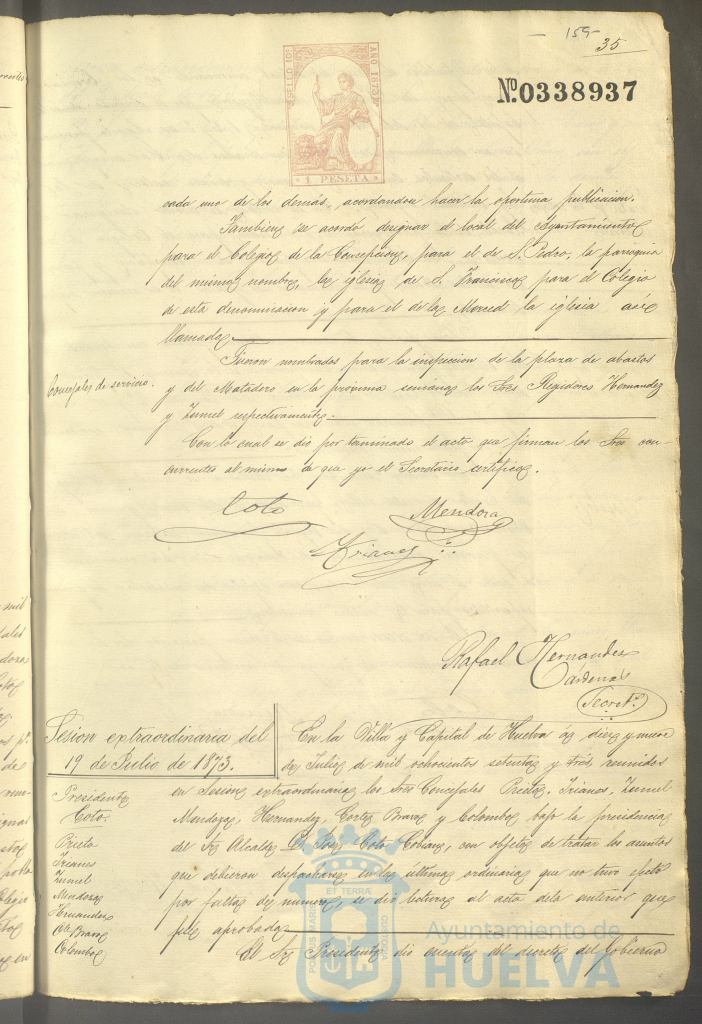 - 159-
35
SELLO 10º
AÑO 1873
1 PESETA
Nº 0338937
cada uno de los demás, acordandose hacer la oportuna publicacion.
Tambien se acordó designar el local del Ayuntamiento
para el Colegio de la Concepcion, para el de S. Pedro, la parroquia
del mismo nombre, la iglesia de S. Francisco para el Colegio
de esta denominacion y para el de la Merced la iglesia asi
llamada.
Concejales de servicio.
Fueron nombrados para la inspeccion de la plaza de abastos
y del Matadero en la proxima semana los Sres Regidores Hernandez
y Zumel respectivamente.
Con lo cual se dio por terminado el acto que firman los Sres con-
currentes al mismo de que yo el Secretario certifico.
Coto
Mendoza
Trianes
Rafael Hernandez
Cárdenas
Secretº
Sesion extraordinaria del
19 de Julio de 1873.
Presidente
Coto
Prieto
Trianes
Zumel
Mendoza
Hernandez
Cte Bravo
Colombo
En la Villa y Capital de Huelva á diez y nueve
de Julio de mil ochocientos setenta y trés, reunidos
en Sesion extraordinaria los Sres Concejales Prieto, Trianes, Zumel
Mendoza, Hernandez, Cortes Bravo y Colombo, bajo la presidencia
del Sr Alcalde D. José Coto Cobian, con objeto de tratar los asuntos
que debieron despacharse en la última ordinaria que no tuvo efecto
por falta de numero, se dio lectura al acta dela anterior que
fué aprobada.
El Sr Presidente dio cuenta del decreto del Gobierno
PORTUS MARIS ET TERRÆ CUSTODIA
Ayuntamiento de
HUELVA